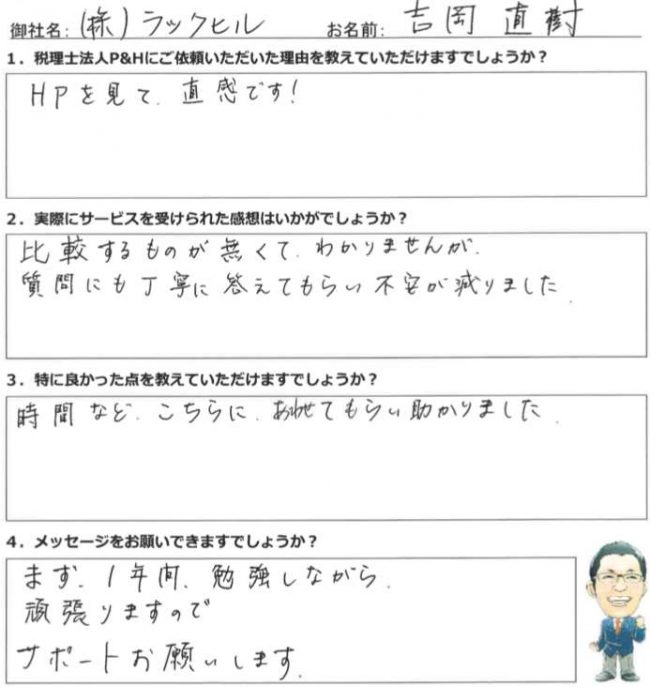 御社名：(株)ラックヒル お名前：吉岡 直樹
１．税理士法人P&Hにご依頼いただいた理由を教えていただけますでしょうか？
HPを見て、直感です!
２．実際にサービスを受けられた感想はいかがでしょうか？
比較するものが無くて、わかりませんが、
質問にも丁寧に答えてもらい不安が減りました。
３．特に良かった点を教えていただけますでしょうか？
時間など、こちらに、あわせてもらい助かりました。
４．メッセージをお願いできますでしょうか？
まず、1年間、勉強しながら、
頑張りますので
サポートお願いします。